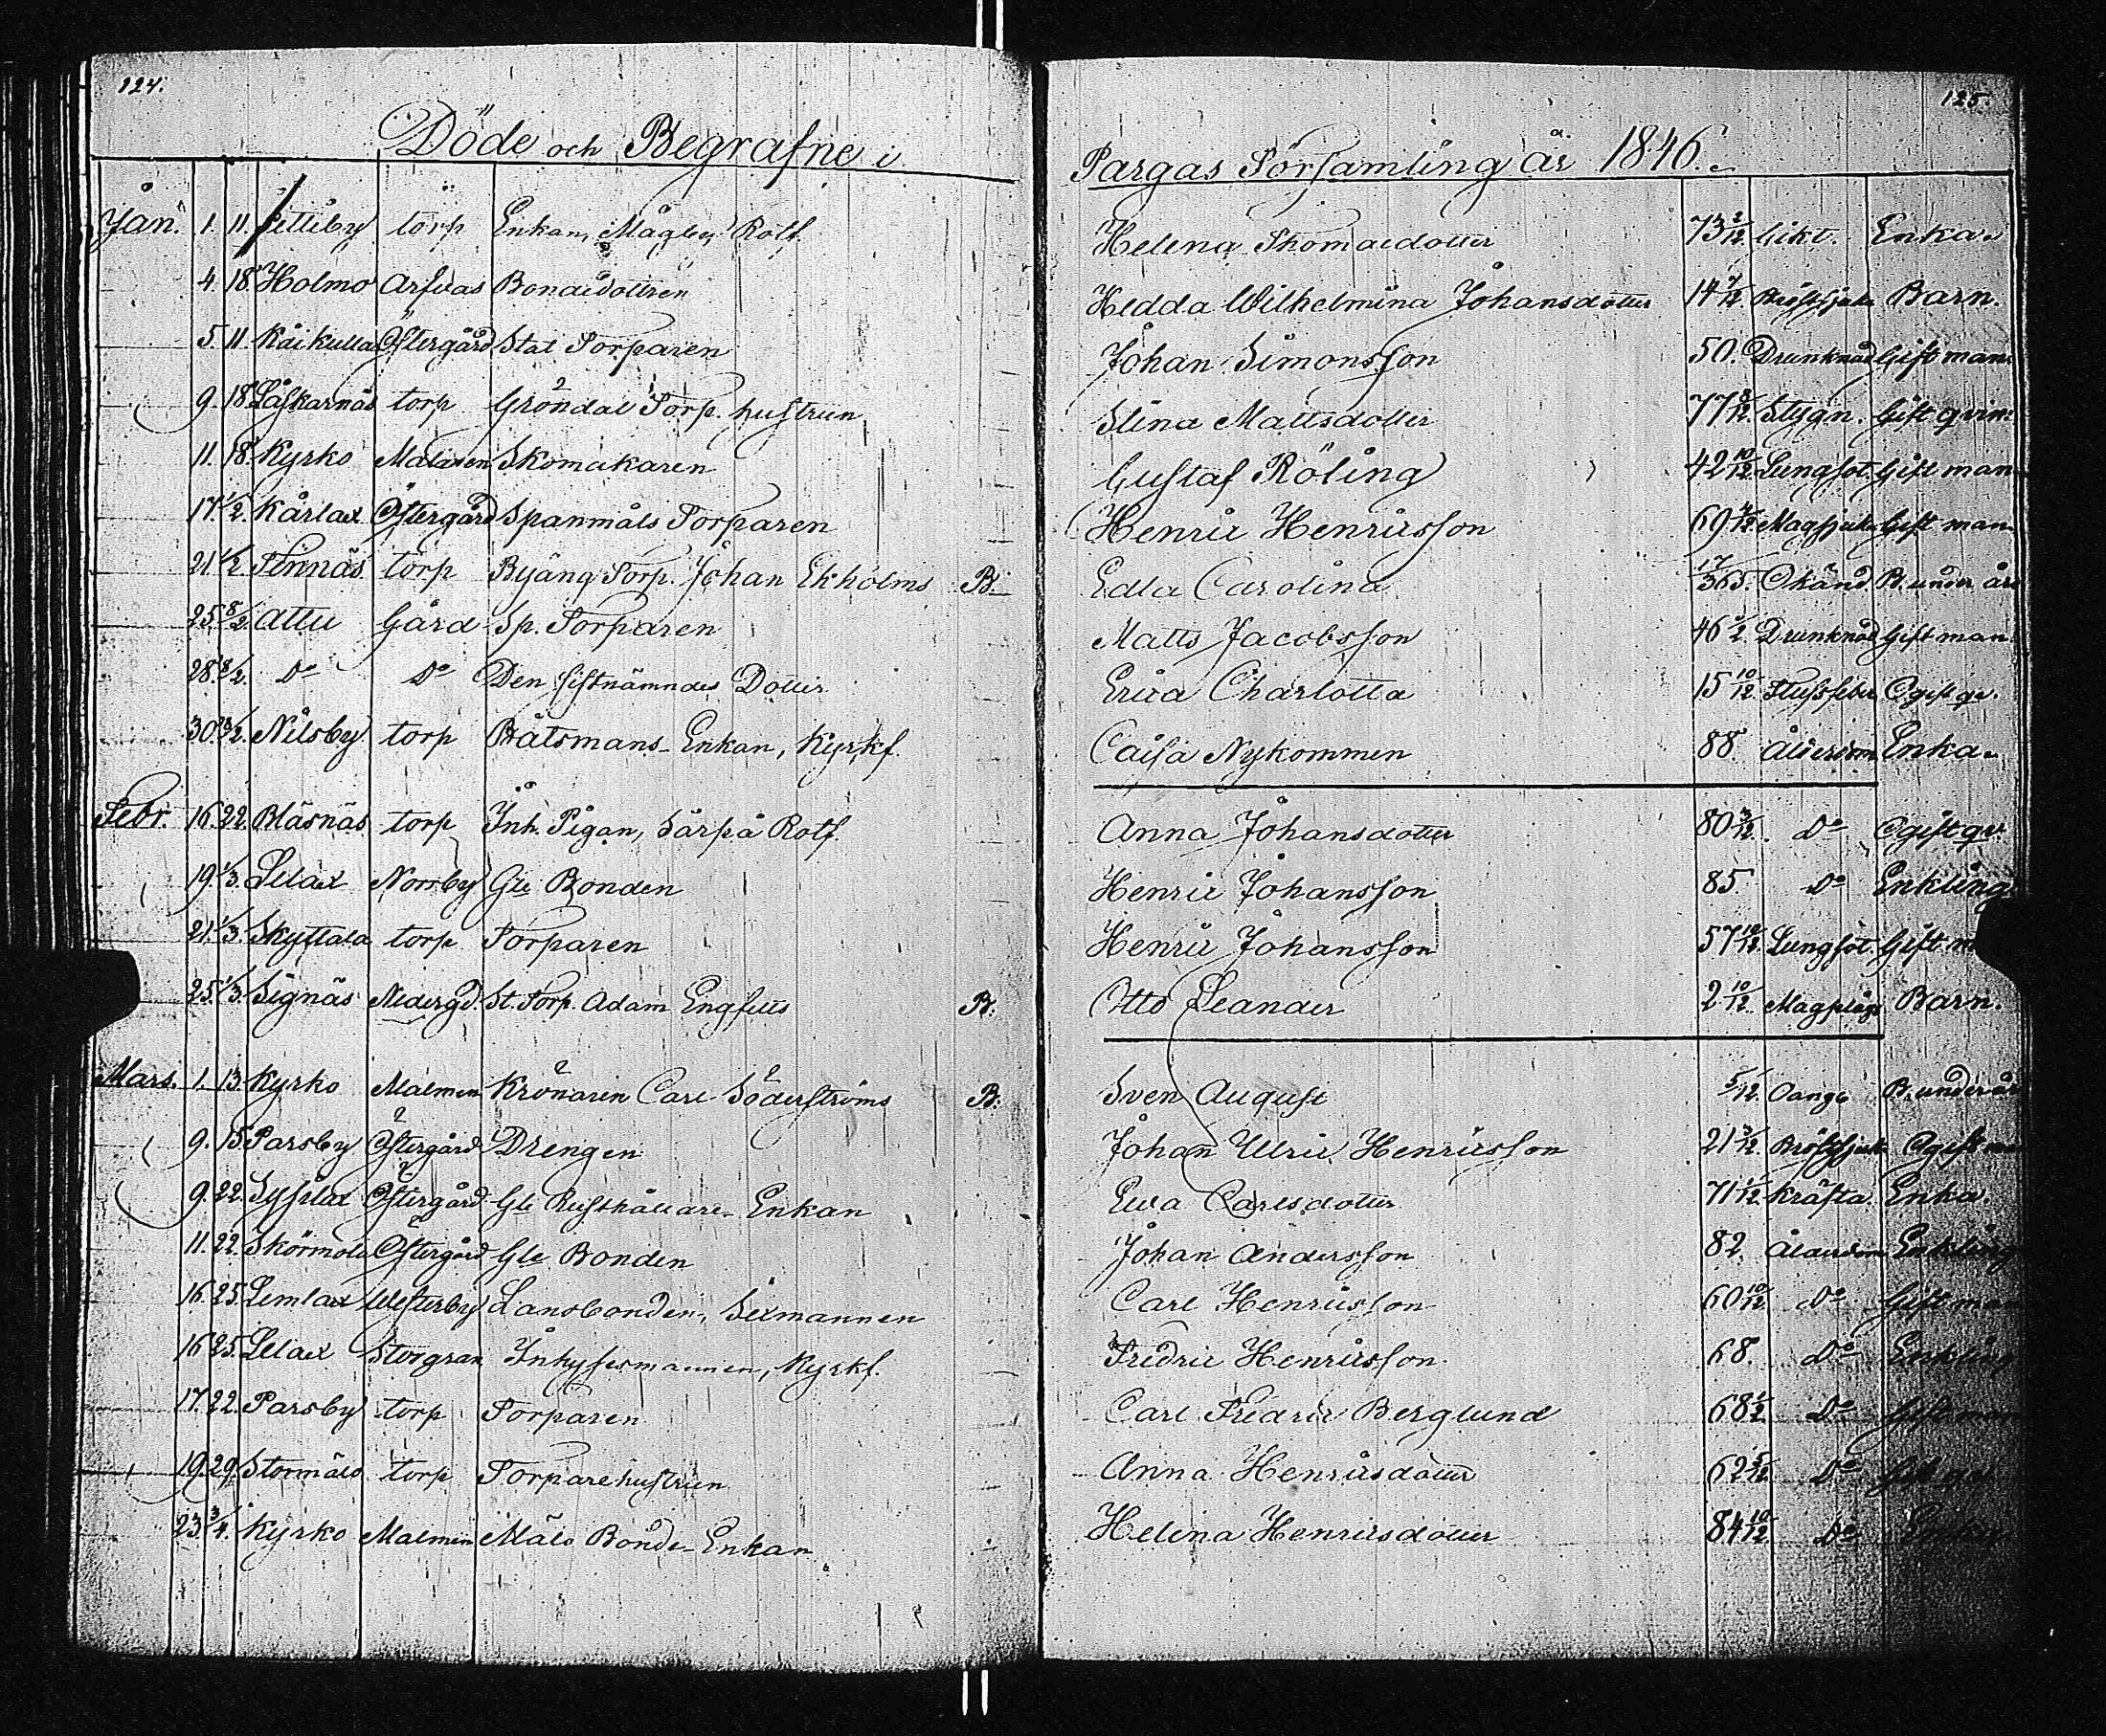 124.
125.
Döde och Begrafne i Pargas Församling år 1846.
Jan. 1. 11. Pettiby torp Enkan, Mågby Rotf. Helena Thomasdotter 73 2/12. Gikt. Enka.
4. 18. Holmo Arfvas Bondedottren Hedda Wilhelmina Johansdotter 14 4/12. Bröstsjuka Barn.
5. 11. Kåikulla Östergård Stat Torparen Johan Simonsson 50. Drunknad Gift man
9. 18. Låskarnäs torp Gröndal Torp. hustrun Stina Mattsdotter 77 8/12. Stygn. Gift qvin:
11. 18. Kyrko Malmen Skomakaren Gustaf Röling 42 10/12. Lungsot. Gift man
17. 1/2. Kårlax Östergård Spanmåls Torparen Henric Henricsson 69 4/12. Magsjuka Gift man
21. 1/2. Finnäs torp Byäng Torp. Johan Ekholms B. Edla Carolina 17/365. Okänd. B. under år
25. 8/2. Attu Gård Sp. Torparen Matts Jacobsson 46 1/2. Drunknad Gift man.
28. 8/2. Do Do Den sistnämndes Dotter Erica Charlotta 15 10/12. Flussfeber Ogift qv.
30. 28/2. Nilsby torp Båtsmans Enkan, Kyrkf. Caisa Nykommen 88. Ålderdom Enka.
Febr. 16. 22. Bläsnäs torp Inh. Pigan, Särpå Rotf. Anna Johansdotter 80 3/12. Do Ogift qv
19. 1/3. Lelax Norrby Gle Bonden Henric Johansson 85. Do Enkling
21. 1/3. Skyttala torp Torparen Henric Johansson 57 10/12. Lungsot. Gift m
25. 1/3. Signäs Nedergd. St. Torp. Adam Engfelts B. Otto Leander 2 10/12. Magplåga Barn.
Mars. 1. 13. Kyrko Malmen Krönaren Carl Söderströms B. Sven August 5/12. Oange B. under år
9. 15. Parsby Östergård Drengen Johan Ulric Henricsson 21 3/12. Bröstsjuka Ogift m
9. 22. Sysilax Östergård Gle Rusthållare Enkan Ewa Carlsdotter 71 1/12. Kräfta. Enka.
11. 22. Skörmola Östergård Gle Bonden Johan Andersson 82. Ålderdom Enkling
16. 25. Lemlax Westerby Lansbonden, Sexmannen Carl Henricsson 60 10/12. Do Gift man
16. 25. Lelax Storgran Inhysesmannen, Kyrkf. Fredric Henricsson 68. Do Enkling
17. 22. Parsby torp Torparen Carl Fredric Berglund 68 1/2. Do Gift man
19. 29. Stormälö torp Torparehustrun Anna Henricsdotter 62 5/12. Do Gift qv
23. 3/4. Kyrko Malmen Mälö Bonde Enkan Helena Henricsdotter 84 10/12. Do Enka